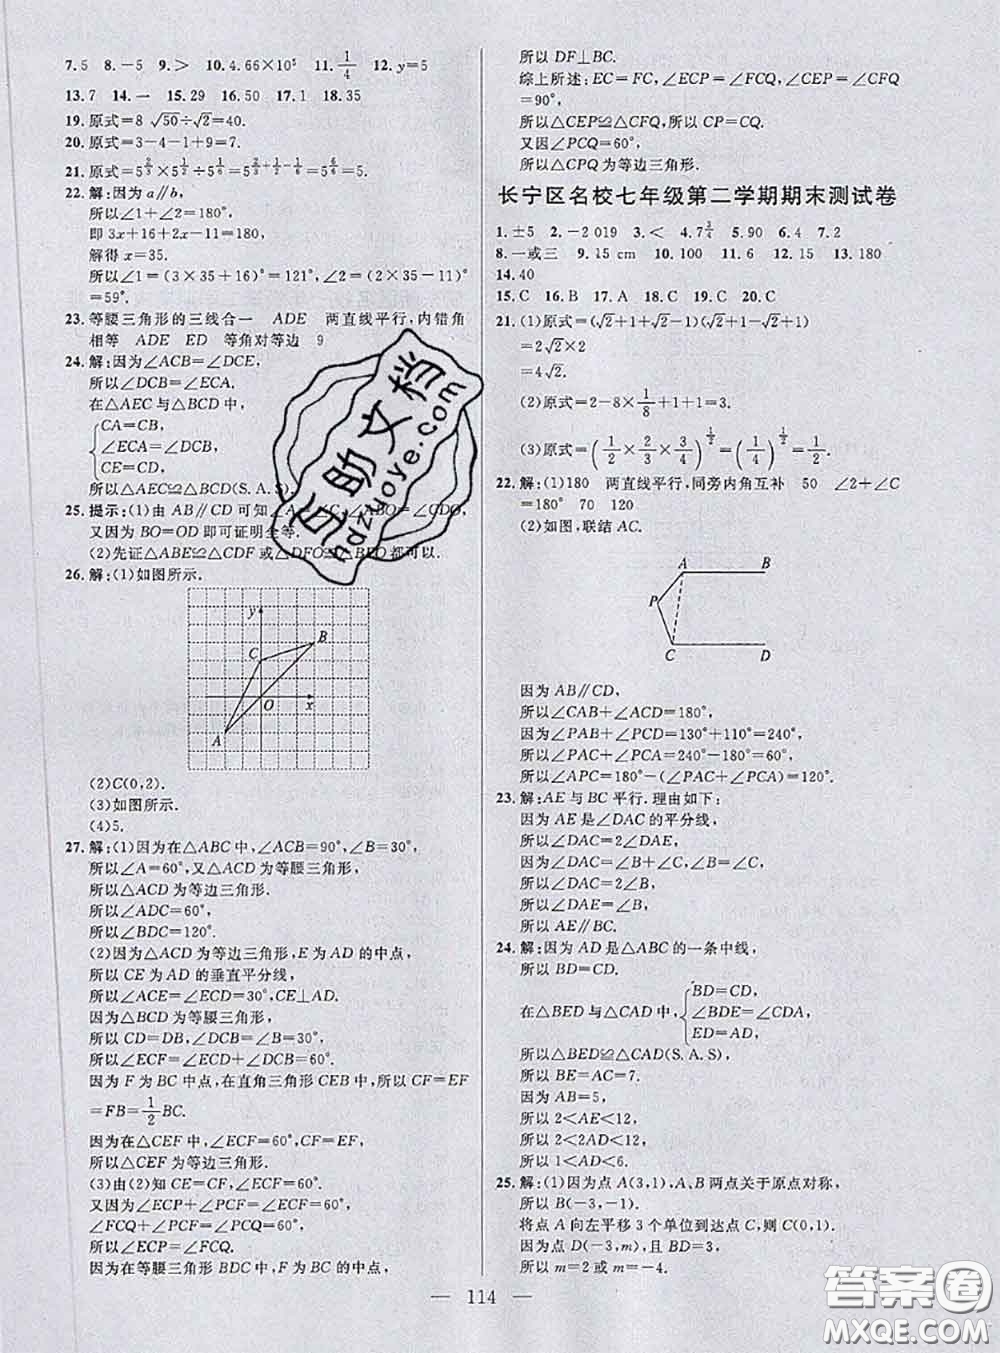 7.5 8.-5 9.> 10.4.66×10⁵ 11.1/4 12.y=5
13.7 14.一 15.29 16.50 17.1 18.35
19.原式=8√50÷√2=40.
20.原式=3-4-1+9=7.
21.原式=5^(2/3)×5^(1/2)÷5^(1/6)=5^(2/3+1/2-1/6)=5^(6/6)=5.
22.解:因为a∥b,
所以∠1+∠2=180°,
即3x+16+2x-11=180,
解得x=35.
所以∠1=(3×35+16)°=121°,∠2=(2×35-11)°
=59°.
23.等腰三角形的三线合一 ADE 两直线平行,内错角
相等 ADE ED 等角对等边 9
24.解:因为∠ACB=∠DCE,
所以∠DCB=∠ECA.
在△AEC与△BCD中,
CA=CB,
∠ECA=∠DCB,
CE=CD,
所以△AEC≌△BCD(S.A.S).
25.提示:(1)由AB∥CD可知∠ABO=∠CDO,
又因为BO=OD即可证明全等.
(2)先证△ABE≌△CDF或△DFO≌△BEO都可以.
26.解:(1)如图所示.
y
B
C
O x
A
(2)C(0,2).
(3)如图所示.
(4)5.
27.解:(1)因为在△ABC中,∠ACB=90°,∠B=30°,
所以∠A=60°,又△ACD为等腰三角形,
所以△ACD为等边三角形.
所以∠ADC=60°,
所以∠BDC=120°.
(2)因为△ACD为等边三角形,E为AD的中点,
所以CE为AD的垂直平分线,
所以∠ACE=∠ECD=30°,CE⊥AD.
因为△BCD为等腰三角形,
所以CD=DB,∠DCB=∠B=30°,
所以∠ECF=∠ECD+∠DCB=60°.
因为F为BC中点,在直角三角形CEB中,所以CF=EF
=FB=1/2BC.
因为在△CEF中,∠ECF=60°,CF=EF,
所以△CEF为等边三角形.
(3)由(2)知CE=CF,∠ECF=60°,
又因为∠ECP+∠PCF=∠ECF=60°,
∠FCQ+∠PCF=∠PCQ=60°,
所以∠ECP=∠FCQ.
因为在等腰三角形BDC中,F为BC的中点,
所以DF⊥BC.
综上所述:EC=FC,∠ECP=∠FCQ,∠CEP=∠CFQ
=90°,
所以△CEP≌△CFQ,所以CP=CQ.
又因∠PCQ=60°,
所以△CPQ为等边三角形.
长宁区名校七年级第二学期期末测试卷
1.±5 2.-2 019 3.< 4.7^(3/4) 5.90 6.4 7.2
8.一或三 9.15 cm 10.100 11.6 12.15 13.180
14.40
15.C 16.B 17.A 18.C 19.C 20.C
21.(1)原式=(√2+1+√2-1)(√2+1-√2+1)
=2√2×2
=4√2.
(2)原式=2-8×1/8+1+1=3.
(3)原式=(1/2×2/3×3/4)^(1/2)=(1/4)^(1/2)=1/2.
22.解:(1)180 两直线平行,同旁内角互补 50 ∠2+∠C
=180° 70 120
(2)如图,联结AC.
A B
P
C D
因为AB∥CD,
所以∠CAB+∠ACD=180°,
因为∠PAB+∠PCD=130°+110°=240°,
所以∠PAC+∠PCA=240°-180°=60°,
所以∠APC=180°-(∠PAC+∠PCA)=120°.
23.解:AE与BC平行.理由如下:
因为AE是∠DAC的平分线,
所以∠DAC=2∠DAE,
因为∠DAC=2∠B,
所以∠DAE=∠B,
所以AE∥BC.
24.解:因为AD是△ABC的一条中线,
所以BD=CD.
BD=CD,
在△BED与△CAD中,∠BDE=∠CDA,
ED=AD,
所以△BED≌△CAD(S.A.S),
所以BE=AC=7,
因为AB=5,
所以2<AE<12,
所以2<2AD<12,
所以1<AD<6.
25.解:(1)因为点A(3,1),A、B两点关于原点对称,
所以B(-3,-1).
将点A向左平移3个单位到达点C,则C(0,1).
因为点D(-3,m),且BD=3,
所以m=2或m=-4.
百助文档
bdzuoye.com
答案圈
MXQE.COM
— 114 —